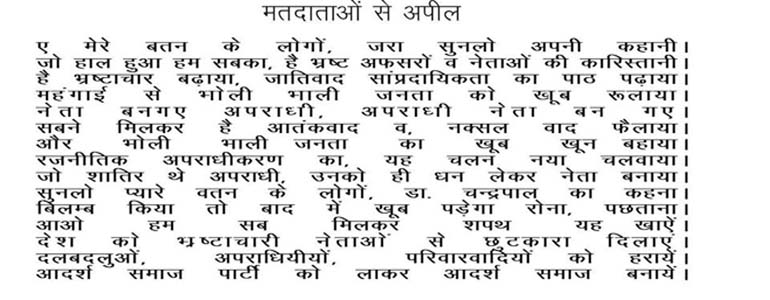 मतदाताओं से अपील
ए मेरे बतन के लोगों, जरा सुनलो अपनी कहानी।
जो हाल हुआ हम सबका, है भ्रष्ट अफसरों व नेताओं की कारिस्तानी।
है भ्रष्टाचार बढ़ाया, जातिवाद सांप्रदायिकता का पाठ पढ़ाया।
महंगाई से भोली भाली जनता को खूब रूलाया।
नेता बनगए अपराधी, अपराधी नेता बन गए।
सबने मिलकर है आतंकवाद व, नक्सल वाद फैलाया।
और भोली भाली जनता का खूब खून बहाया।
रजनीतिक अपराधीकरण का, यह चलन नया चलवाया।
जो शातिर थे अपराधी, उनको ही धन लेकर नेता बनाया।
सुनलो प्यारे वतन के लोगों, डा. चन्द्रपाल का कहना।
बिलम्ब किया तो बाद में खूब पड़ेगा रोना, पछताना।
आओ हम सब मिलकर शपथ यह खाऐं।
देश को भ्रष्टाचारी नेताओं से छुटकारा दिलाएं।
दलबदलुओं, अपराधियीयों, परिवारवादियों को हरायें।
आदर्श समाज पार्टी को लाकर आदर्श समाज बनायें।